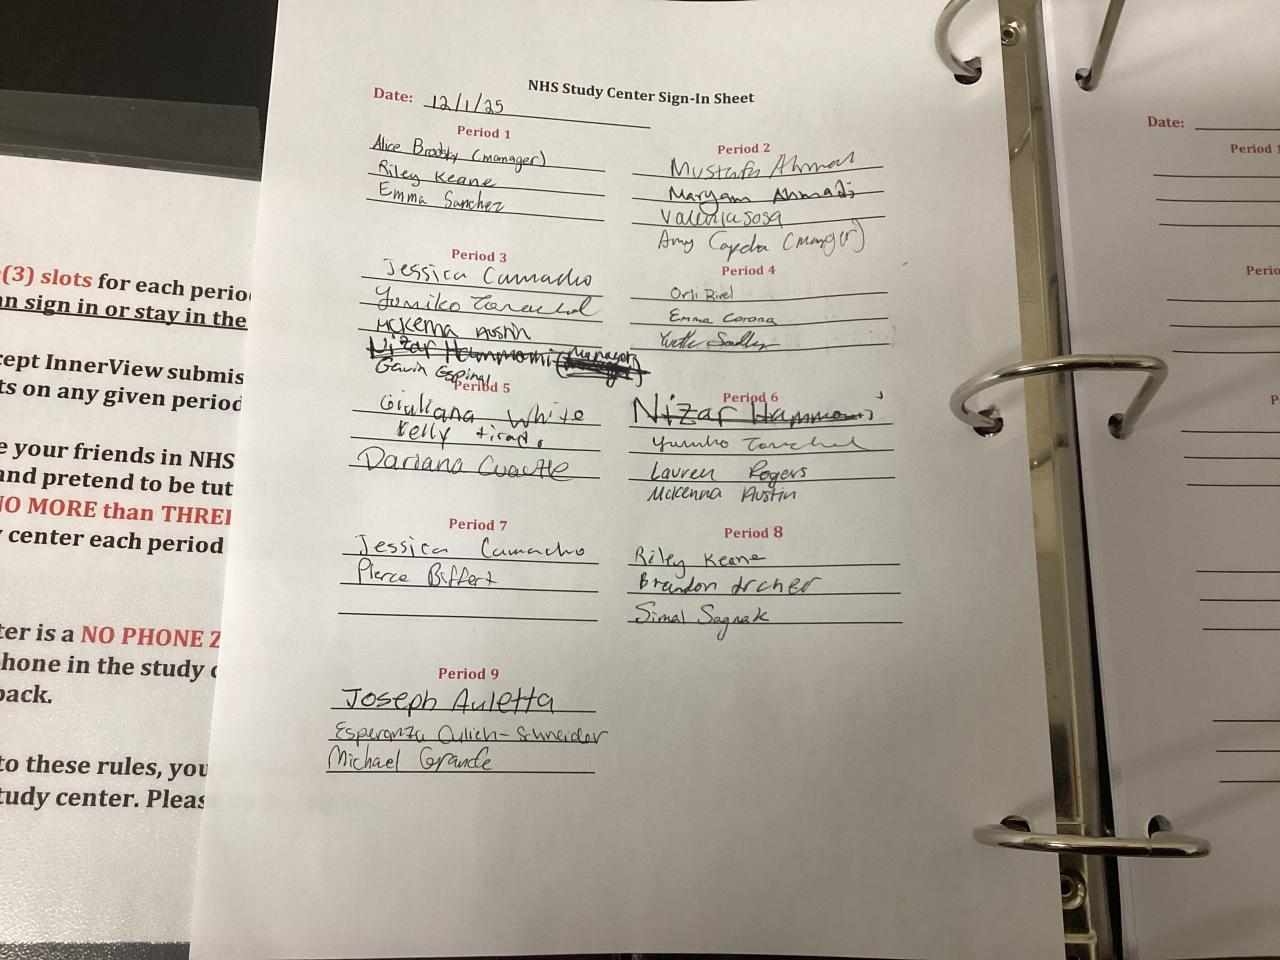 NHS Study Center Sign-In Sheet
Date: 12/1/25
Period 1
Alice Brodsky (manager)
Riley Keane
Emma Sanchez
Period 2
Mustafa Ahmad
Maryam Ahmadi
Valeria Sosa
Amy
Period 3
Jessica Camacho
Yumiko
McKenna Austin
Nizar Hammomi (Manager)
Gavin Espinal
Period 4
Orli
Emma Corona
Yvette
Period 5
Giuliana White
Kelly
Dariana Cuautle
Period 6
Nizar
Lauren Rogers
McKenna Austin
Period 7
Jessica Camacho
Pierce Biffert
Period 8
Riley Keane
Brandon Archer
Simal Sagnak
Period 9
Joseph Auletta
Esperanza Culich-Schneider
Michael Grande
(3) slots for each perio
n sign in or stay in the
cept InnerView submis
ts on any given period
e your friends in NHS
and pretend to be tut
NO MORE than THREE
center each period
ter is a NO PHONE Z
hone in the study c
back.
to these rules, you
tudy center. Pleas
Date:
Period 1
Perio
P